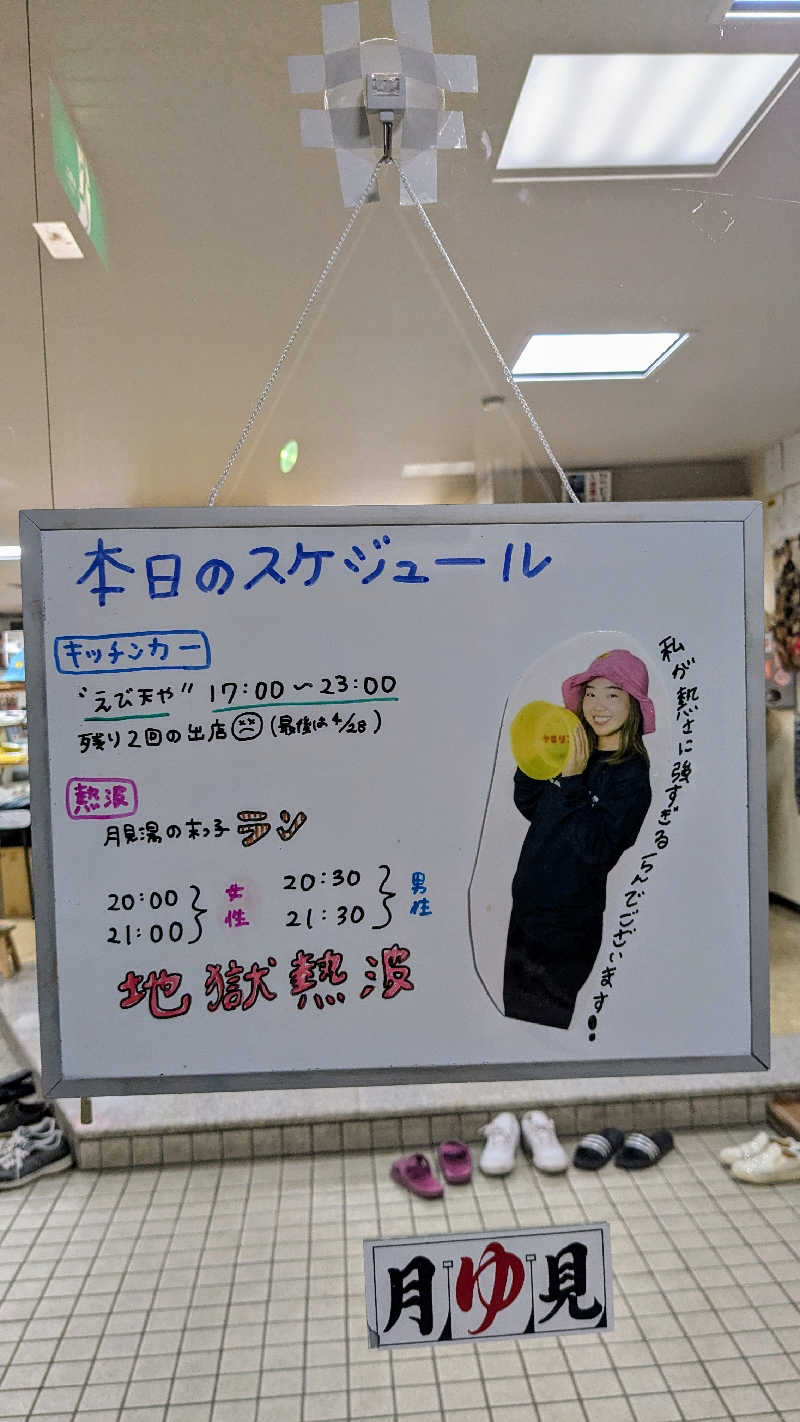 本日のスケジュール
キッチンカー
"えび天や" 17:00〜23:00
残り2回の出店(最後は4/28)
熱波
月見湯の末っ子 ラン
20:00
21:00
女性
20:30
21:30
男性
地獄熱波
私が熱さに強すぎるらんでございます!
月ゆ見